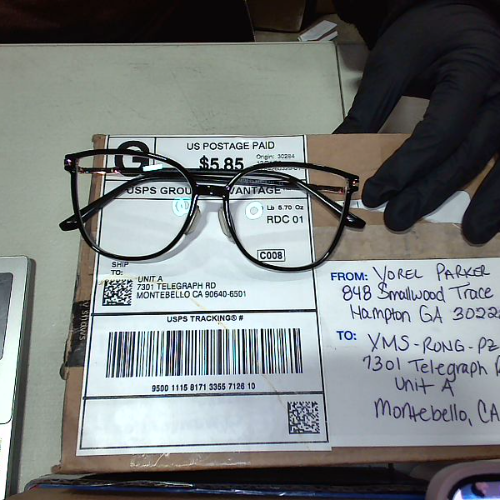 G
US POSTAGE PAID
$5.85
Origin: 30294
USPS GROUND ADVANTAGE™
Lb 5.70 Oz
RDC 01
C008
SHIP
TO:
UNIT A
7301 TELEGRAPH RD
MONTEBELLO CA 90640-6501
USPS TRACKING® #
9500 1115 8171 3355 7126 10
FROM: YOREL PARKER
848 Smallwood Trace
Hampton GA 30228
TO: YMS-RONG-PZ
7301 Telegraph R
Unit A
Montebello, CA